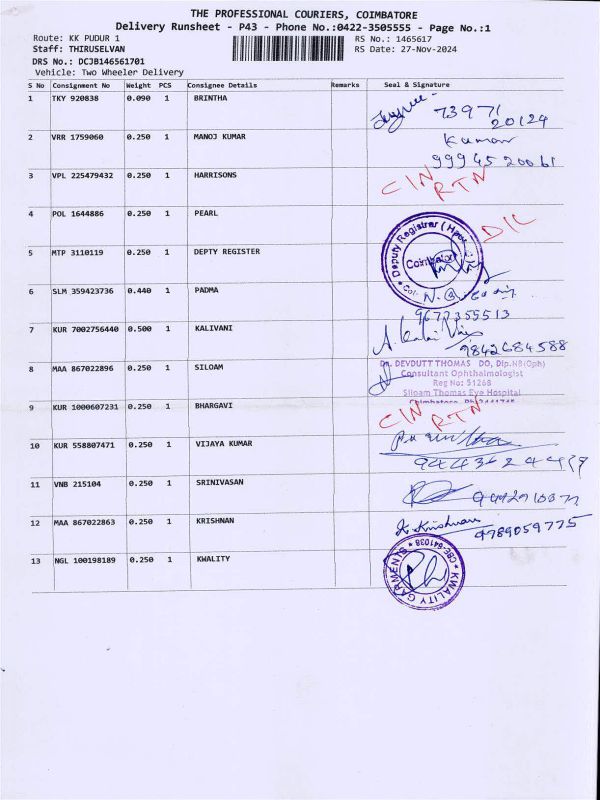 THE PROFESSIONAL COURIERS, COIMBATORE
Delivery Runsheet - P43 - Phone No.:0422-3505555 - Page No.:1
Route: KK PUDUR 1 RS No.: 1465617
Staff: THIRUSELVAN RS Date: 27-Nov-2024
DRS No.: DCJB146561701
Vehicle: Two Wheeler Delivery
S No Consignment No Weight PCS Consignee Details Remarks Seal & Signature
1 TKY 920838 0.090 1 BRINTHA
73971
20124
2 VRR 1759060 0.250 1 MANOJ KUMAR Kumar
9994520061
3 VPL 225479432 0.250 1 HARRISONS CIN
RTN
4 POL 1644886 0.250 1 PEARL D/L
5 MTP 3110119 0.250 1 DEPTY REGISTER Deputy Registrar
Coimbatore
6 SLM 359423736 0.440 1 PADMA
9677355513
7 KUR 7002756440 0.500 1 KALIVANI
9842684588
8 MAA 867022896 0.250 1 SILOAM Dr. DEVDUTT THOMAS DO, Dip.NB(Oph)
Consultant Ophthalmologist
Reg No: 51268
Siloam Thomas Eye Hospital
9 KUR 1000607231 0.250 1 BHARGAVI CIN
RTN
10 KUR 558807471 0.250 1 VIJAYA KUMAR
11 VNB 215104 0.250 1 SRINIVASAN
12 MAA 867022863 0.250 1 KRISHNAN K. Krishnan
9789059775
13 NGL 100198189 0.250 1 KWALITY KWALITY GARMENTS CBE-641038